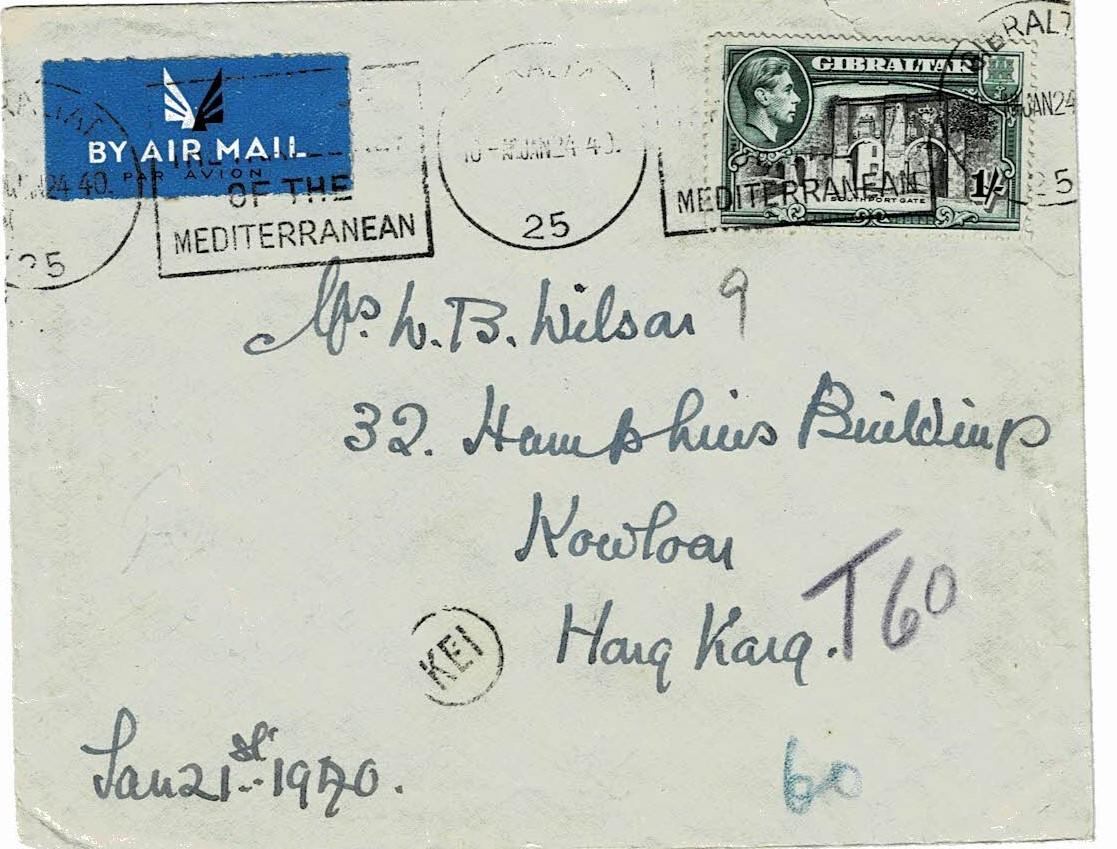 BY AIR MAIL
PAR AVION
OF THE
MEDITERRANEAN
JAN 24 40.
25
10 - JAN 24 40.
25
GIBRALTAR
SOUTHPORT GATE
1/-
MEDITERRANEAN
GIBRALT
JAN 24
25
Mrs. W. B. Wilson 9
32. Humphries Buildings
Kowloon
Hong Kong. T60
KEI
Jan 21st - 1940.
60